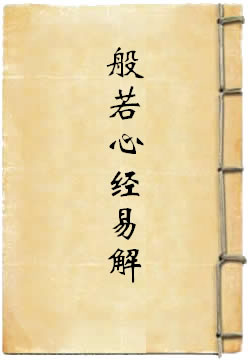 般若心经易解